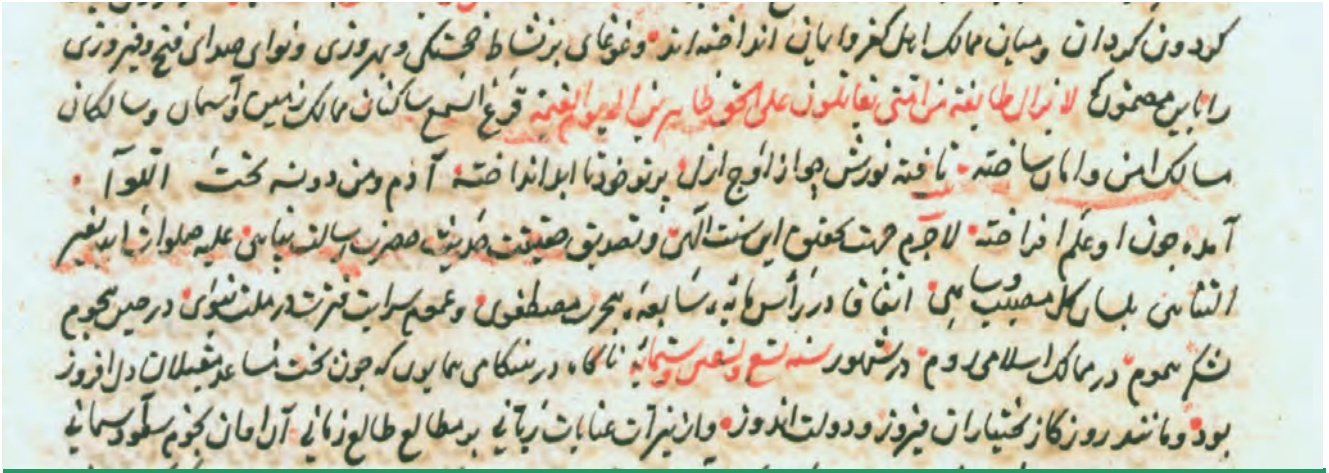 کردون کردان و میان ممالک اهل کفر و ایمان انداخته‌اند و غوغای بر نشاط خجستگی و بهروزی و نوای صدای فتح و فیروزی
را باین مضمون که لا یزال طایفة من امتی یقاتلون علی الحق ظاهرین الی یوم القیمة قرع السمع ساکنان ممالک زمین و آسمان و سالکان
مسالک امن و امان ساخته تافته نورش چو از اوج ازل پرتو خود تا ابد انداخته آدم و من دونه تحت اللوا
آمده چون او علم افراخته لاجرم جهت تحقیق این سنت الهی و تصدیق حقیقت حدیث حضرت رسالت پناهی علیه صلوات الله بغیر
التناهی بلسان کل مصیب اتفاق در رأس مایه سابعه هجرت مصطفوی و عموم سرایت فترت در ملت نبوی در حین هجوم
لشکر هموم در ممالک اسلامی روم در شهور سنه تسع و تسعین و ستمایه ناکاه در هنکامی همایون که چون تخت مساعد مقبلان دل افروز
بود و مانند روزکار بختیاران فیروز و دولت اندوز و از نیرات عنایات ربانی بر مطالع طالع زمانی آن اوان نجوم سعود سمانی